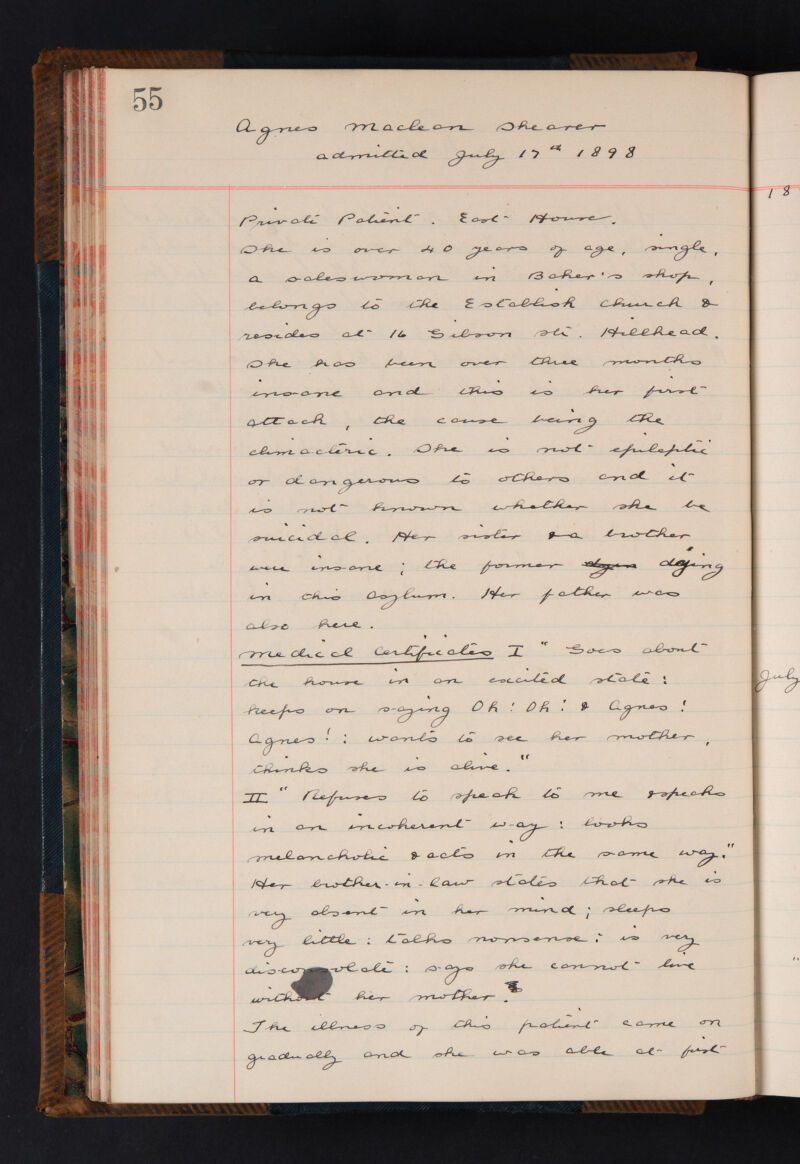 55
Agnes Maclean Shearer
admitted July 17th 1898
18
Private Patient. East House.
She is over 40 years of age, single,
a saleswoman in Baker's shop,
belongs to the Establish Church &
resides at 16 Gibson St. Hillhead.
She has been over three months
insane and this is her first
attack, the cause being the
climacteric. She is not epileptic
or dangerous to others and it
is not known whether she be
suicidal. Her sister & a brother
were insane; the former dying
in this asylum. Her father was
also here.
Medical Certificates I "Goes about
the house in an excited state:
July
keeps on saying Oh! Oh! & Agnes!
Agnes!: wants to see her mother,
thinks she is alive."
II "Refuses to speak to me & speaks
in an incoherent way: looks
melancholic & acts in the same way."
Her brother-in-law states that she is
very absent in her mind; sleeps
very little: talks nonsense: is very
disconsolate: says she cannot live
"
without her mother.
The illness of this patient came on
gradually and she was able at first